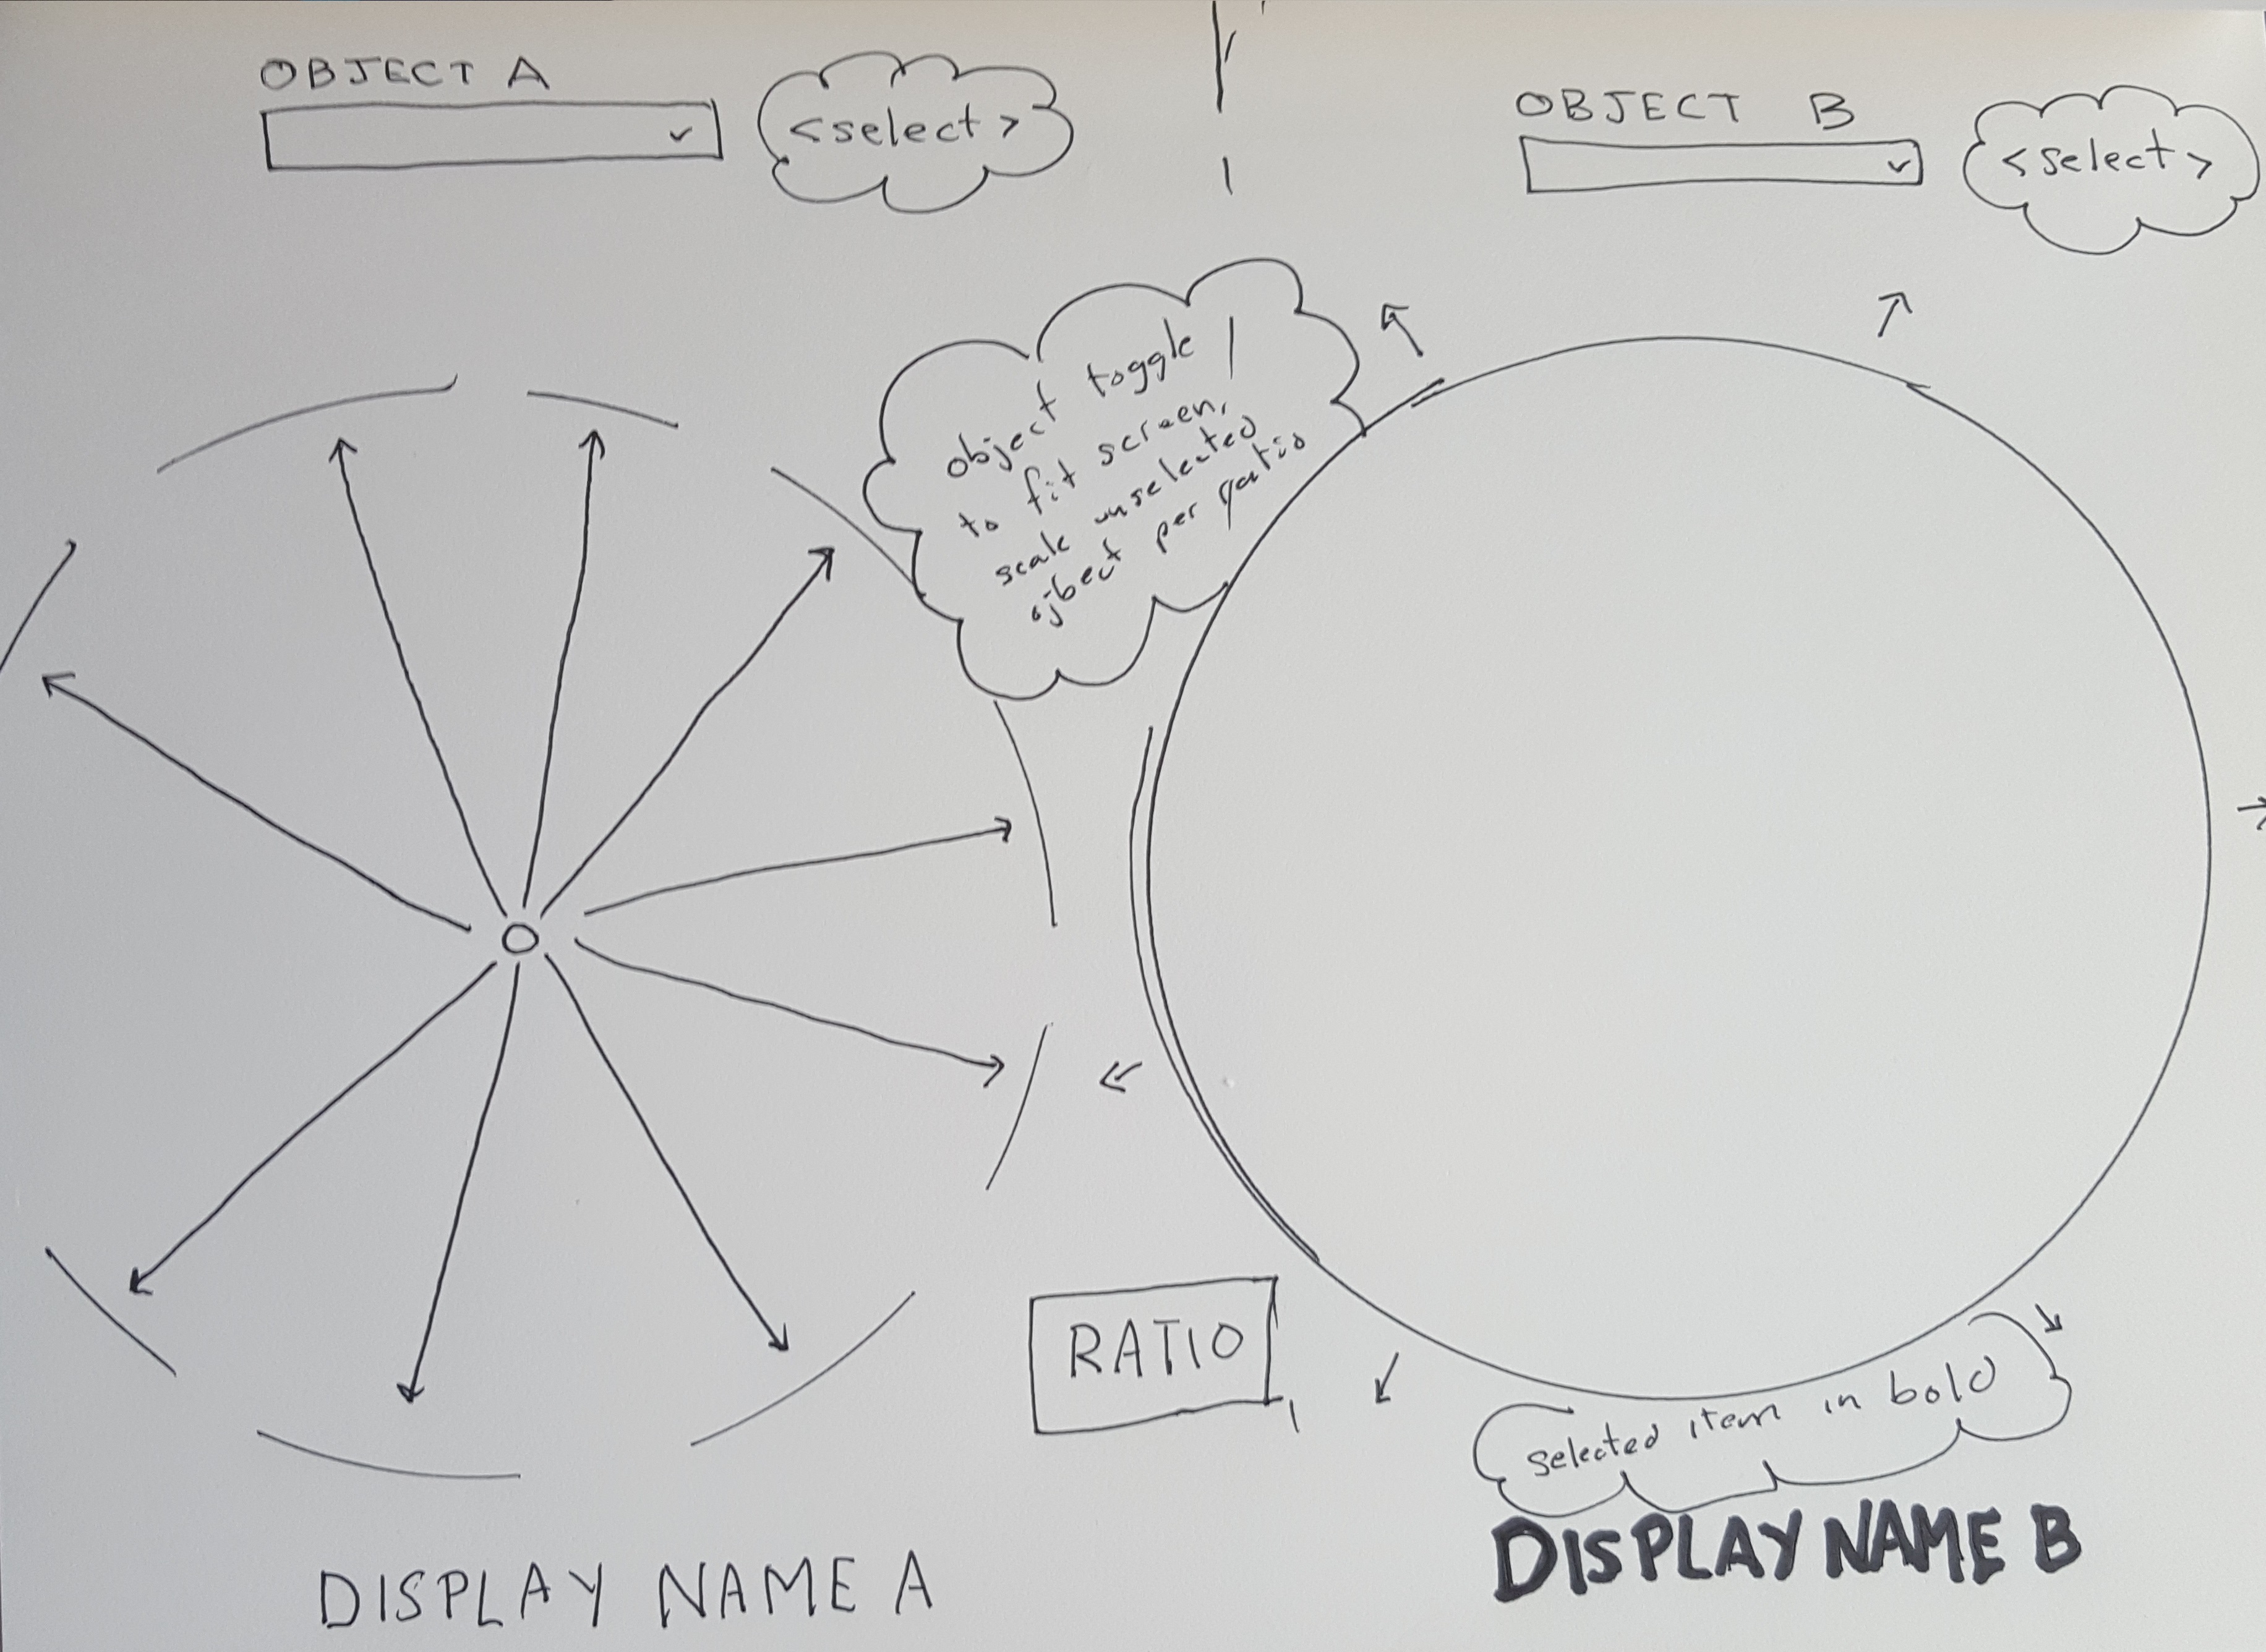 OBJECT A
<select>
OBJECT B
<select>
object toggle /
to fit screen,
scale unselected
ojbect per ratio
RATIO
selected item in bold
DISPLAY NAME A
DISPLAY NAME B